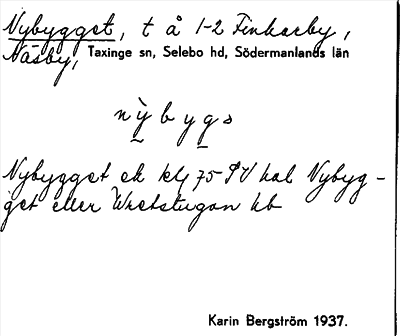 Nybygget, t å 1-2 Finkarby,
Näsby, Taxinge sn, Selebo hd, Södermanlands län
nỳbygs
Nybygget ek kly 75 hal Nybyg-
get eller stugan kb
Karin Bergström 1937.